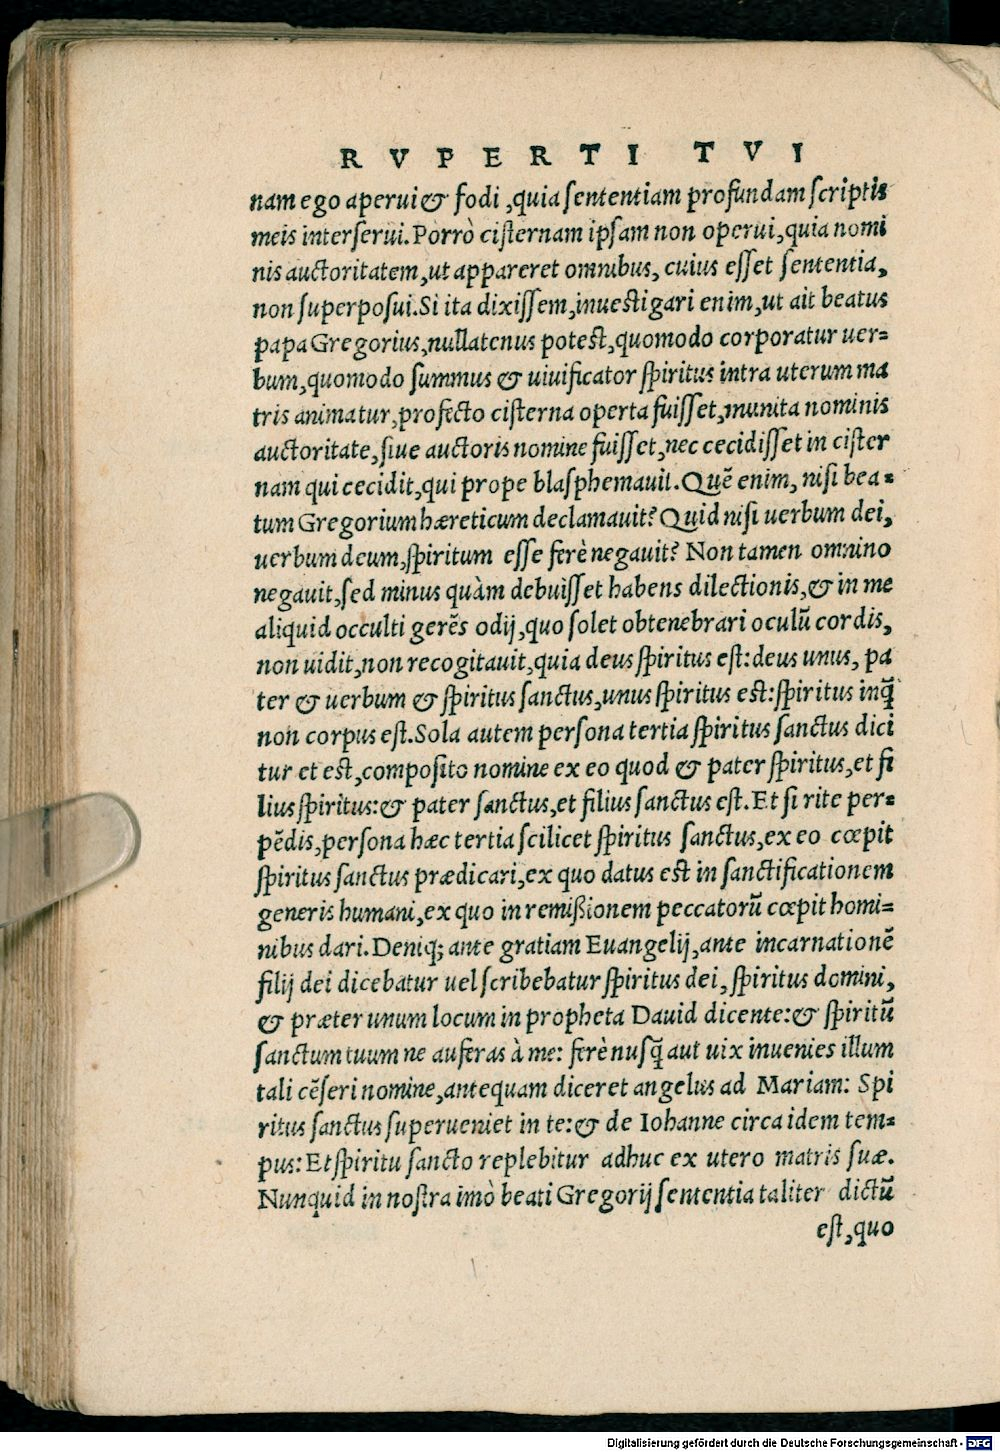 RVPERTI TVI
nam ego aperui & fodi, quia sententiam profundam scriptis
meis interserui. Porrò cisternam ipsam non operui, quia nomi
nis auctoritatem, ut appareret omnibus, cuius esset sententia,
non superposui. Si ita dixissem, inuestigari enim, ut ait beatus
papa Gregorius, nullatenus potest, quomodo corporatur uer=
bum, quomodo summus & uiuificator spiritus intra uterum ma
tris animatur, profecto cisterna operta fuisset, munita nominis
auctoritate, siue auctoris nomine fuisset, nec cecidisset in cister
nam qui cecidit, qui prope blasphemauit. Quē enim, nisi bea=
tum Gregorium hæreticum declamauit? Quid nisi uerbum dei,
uerbum deum, spiritum esse ferè negauit? Non tamen omnino
negauit, sed minus quàm debuisset habens dilectionis, & in me
aliquid occulti gerēs odij, quo solet obtenebrari oculū cordis,
non uidit, non recogitauit, quia deus spiritus est: deus unus, pa
ter & uerbum & spiritus sanctus, unus spiritus est: spiritus inq̃
non corpus est. Sola autem persona tertia spiritus sanctus dici
tur et est, composito nomine ex eo quod & pater spiritus, et fi
lius spiritus: & pater sanctus, et filius sanctus est. Et si rite per=
pēdis, persona hæc tertia scilicet spiritus sanctus, ex eo cœpit
spiritus sanctus prædicari, ex quo datus est in sanctificationem
generis humani, ex quo in remißionem peccatorū cœpit homi=
nibus dari. Deniq; ante gratiam Euangelij, ante incarnationē
filij dei dicebatur uel scribebatur spiritus dei, spiritus domini,
& præter unum locum in propheta Dauid dicente: & spiritū
sanctum tuum ne auferas à me: ferè nusq̃ aut uix inuenies illum
tali cēseri nomine, antequam diceret angelus ad Mariam: Spi
ritus sanctus superueniet in te: & de Iohanne circa idem tem=
pus: Et spiritu sancto replebitur adhuc ex utero matris suæ.
Nunquid in nostra imò beati Gregorij sententia taliter dictū
est, quo
Digitalisierung gefördert durch die Deutsche Forschungsgemeinschaft - DFG